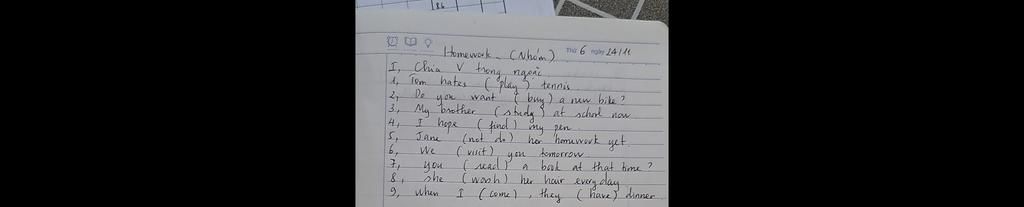 86
Homework (Nhóm) Thứ 6 ngày 14/11
I, Chia V trong ngoặc
1, Tom hates (play) tennis.
2, Do you want (buy) a new bike?
3, My brother (study) at school now
4, I hope (find) my pen.
5, Jane (not do) her homework yet.
6, We (visit) you tomorrow.
7, you (read) a book at that time?
8, she (wash) her hair every day
9, When I (come), they (have) dinner